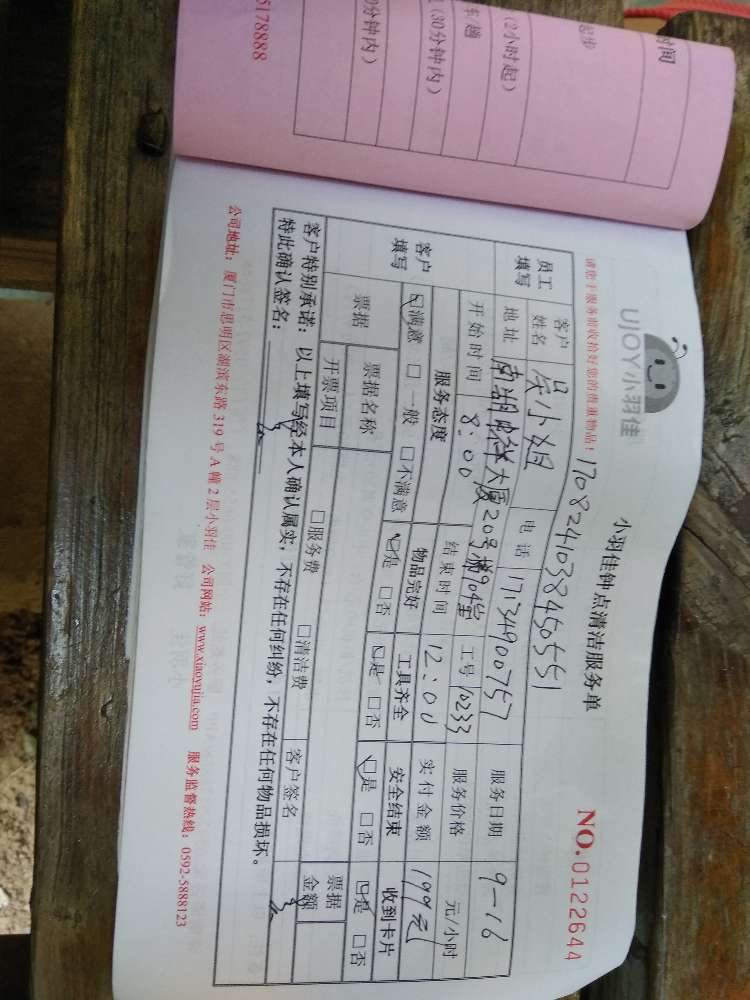 时间
起步
(2小时起)
车/趟
(30分钟内)
0分钟内)
5178888
UJOY小羽佳
小羽佳钟点清洁服务单
NO.0122644
请您于服务前收拾好您的贵重物品!
1708241038450551
员工填写 客户姓名 吴小姐 电话 17134900757 服务日期 9-16
地址 南湖 大厦20号楼904室 工号 10233 服务价格 元/小时
开始时间 8:00 结束时间 12:00 实付金额 199元
客户填写 服务态度 物品完好 工具齐全 安全结束 收到卡片
☑满意 □一般 □不满意 ☑是 □否 ☑是 □否 ☑是 □否 ☑是 □否
票据 票据名称 票据金额
开票项目 □服务费 □清洁费 客户签名
客户特别承诺:以上填写经本人确认属实,不存在任何纠纷,不存在任何物品损坏。
特此确认签名:
公司地址:厦门市思明区湖滨东路319号A幢2层小羽佳 公司网站:www.xiaoyujia.com 服务监督热线:0592-5888123